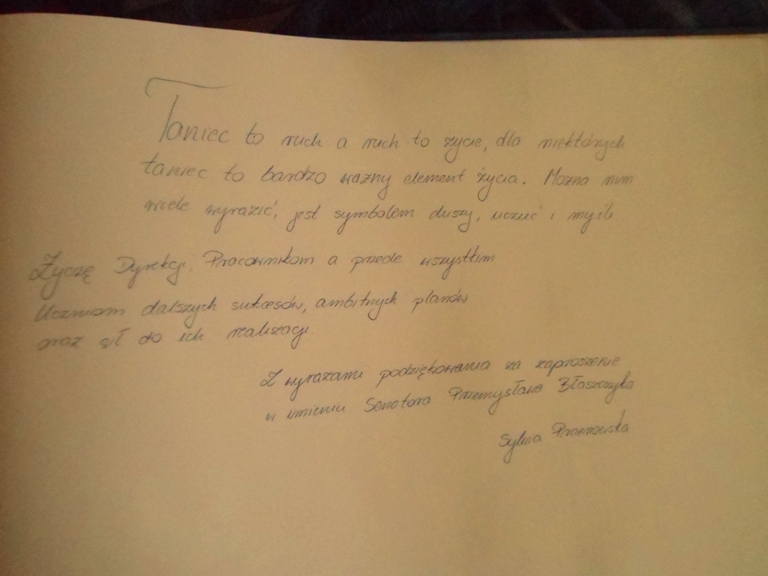 Taniec to ruch a ruch to życie, dla niektórych
taniec to bardzo ważny element życia. Można nim
wiele wyrazić, jest symbolem duszy, uczuć i myśli.
Życzę Dyrekcji, Pracownikom a przede wszystkim
Uczniom dalszych sukcesów, ambitnych planów
oraz sił do ich realizacji.
Z wyrazami podziękowania za zaproszenie
w imieniu Senatora Przemysława Błaszczyka
Sylwia